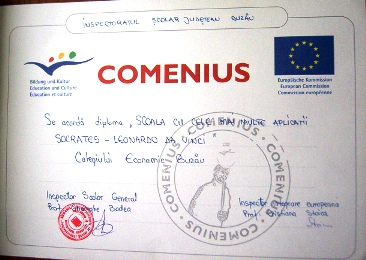 INSPECTORATUL ŞCOLAR JUDEŢEAN BUZĂU
Bildung und Kultur
Education and Culture
Education et culture
COMENIUS
Europäische Kommission
European Commission
Commission européenne
Se acordă diploma „ŞCOALA CU CELE MAI MULTE APLICAŢII
SOCRATES - LEONARDO DA VINCI"
Colegiului Economic Buzău
COMENIUS · COMENIUS · COMENIUS · COMENIUS
Inspector Şcolar General
Prof. Gheorghe Badea
Inspector Integrare europeană
Prof.